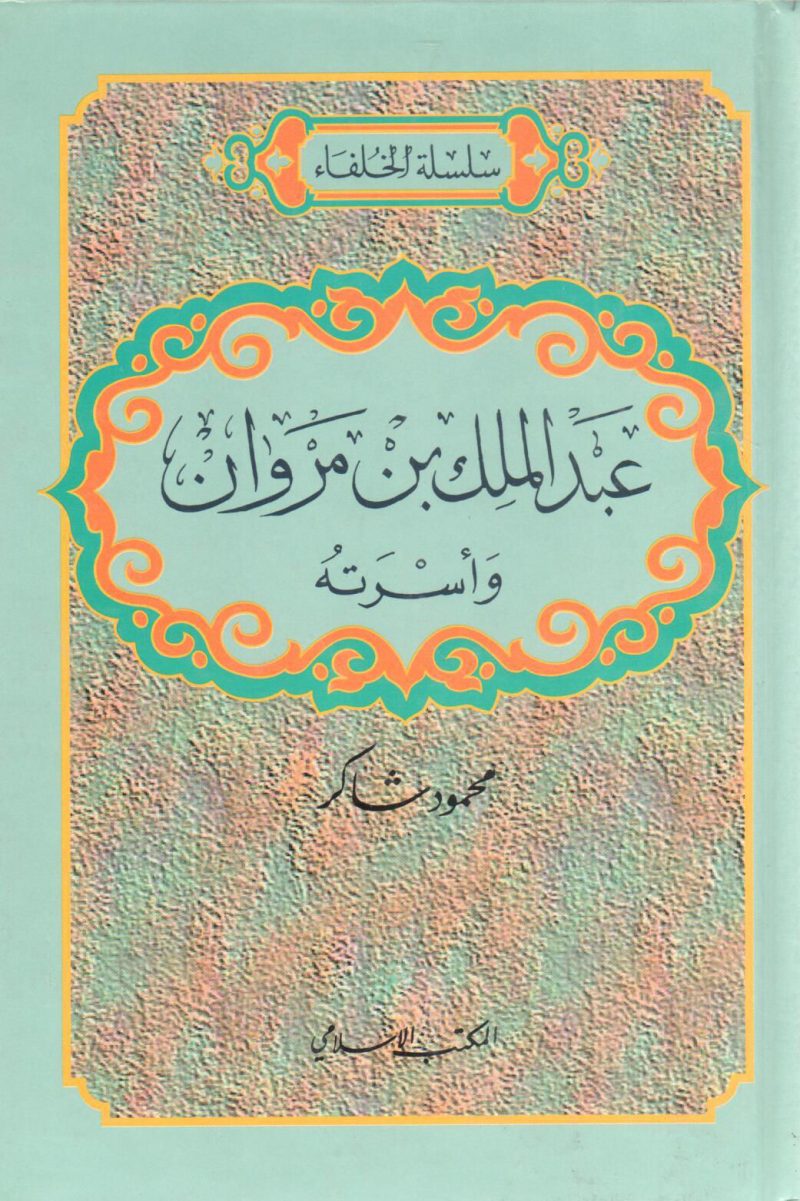 سلسلة الخلفاء
عَبْدَ المَلِك بْن مَرْوَان
وَأسْرَتهُ
محمود شاكر
المكتب الإسلامي